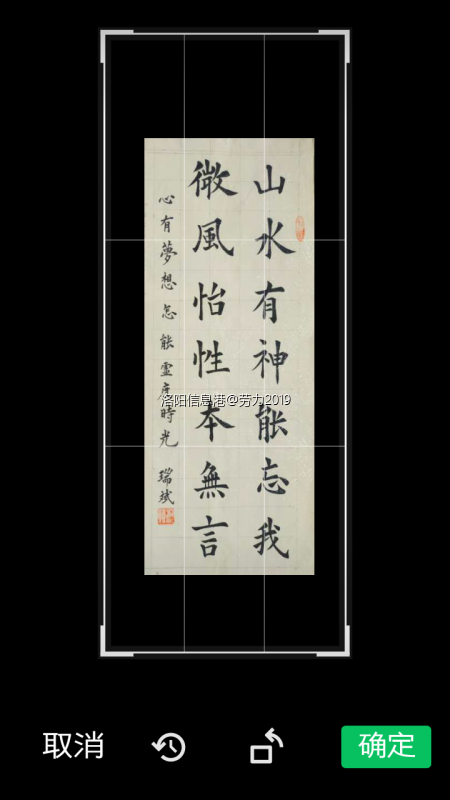 山水有神能忘我
微風怡性本無言
心有夢想怎能虛度時光
瑞斌
洛阳信息港@劳力2019
取消
确定